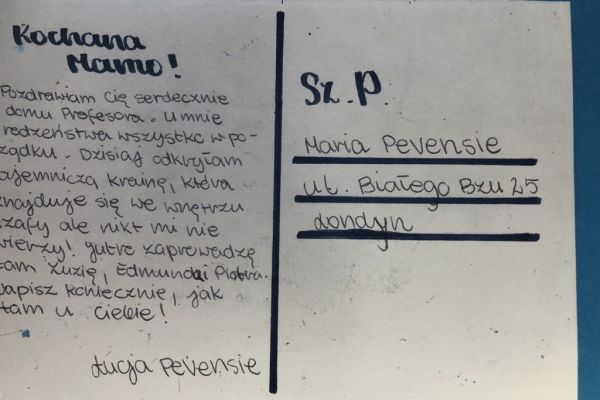 Kochana
Mamo!
Pozdrawiam Cię serdecznie
domu Profesora. U mnie
rodzeństwa wszystko w po-
ządku. Dzisiaj odkryłam
ajemniczą krainę, która
znajduje się we wnętrzu
zafy ale nikt mi nie
wierzy! Jutro zaprowadzę
tam Zuzię, Edmunda i Piotra.
Napisz koniecznie, jak
tam u Ciebie!
Łucja Pevensie
Sz. P.
Maria Pevensie
ul. Białego Bzu 25
Londyn